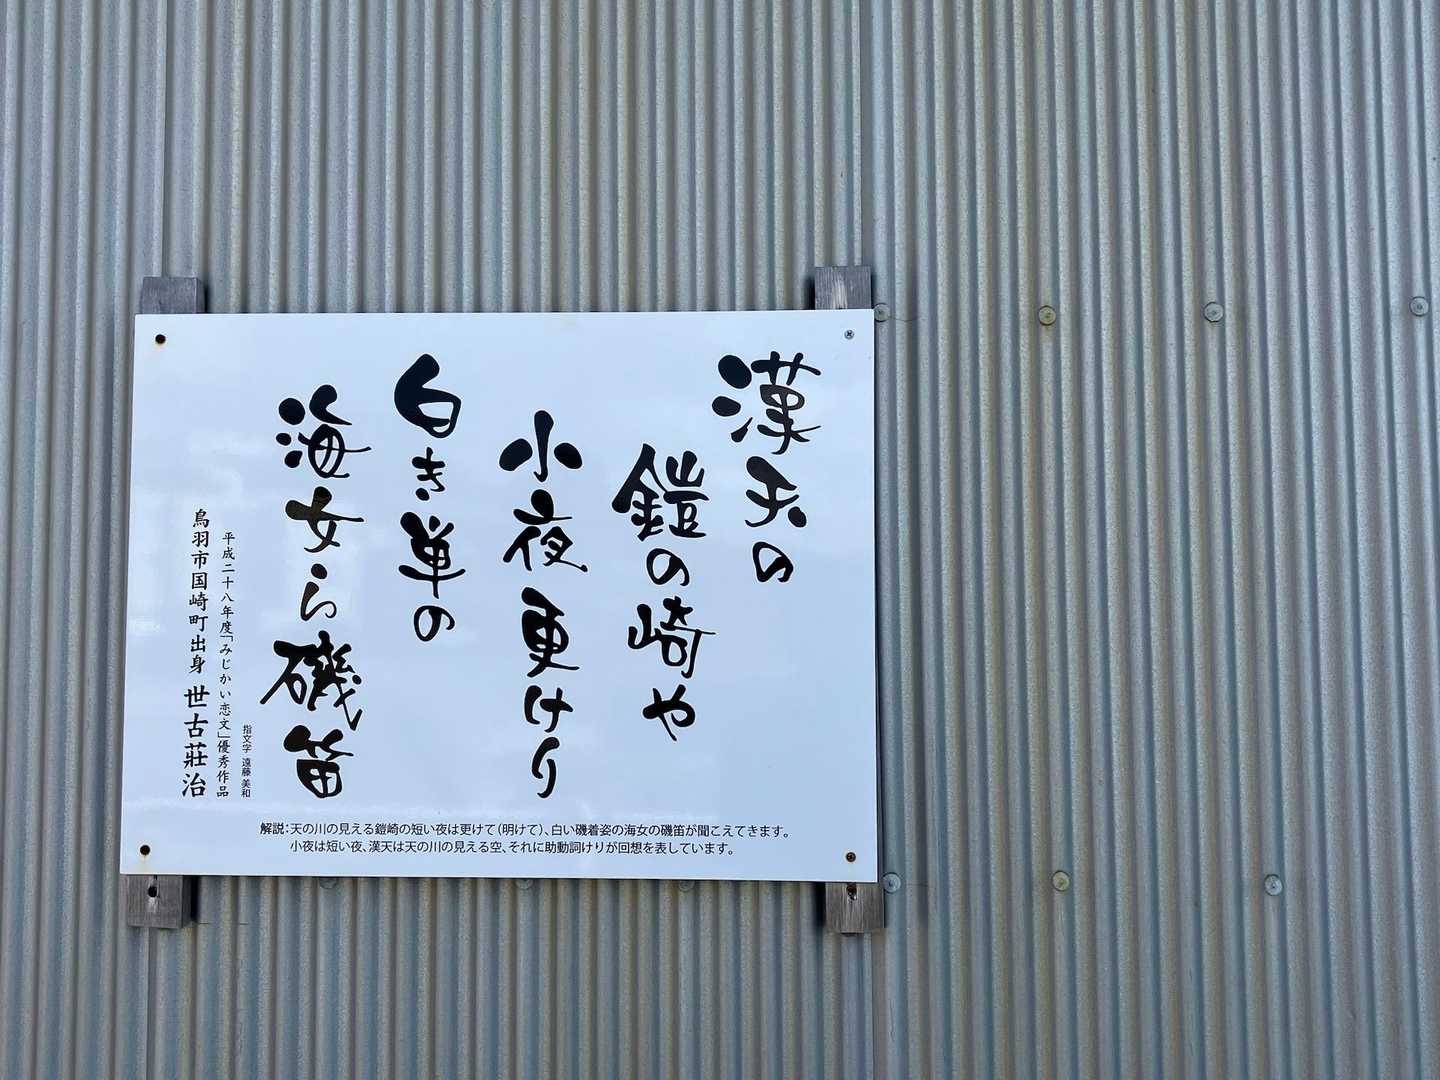 漢天の
鎧の崎や
小夜更けり
白き単の
海女ら磯笛
指文字 遠藤 美和
平成二十八年度「みじかい恋文」優秀作品
鳥羽市国崎町出身 世古荘治
解説：天の川の見える鎧崎の短い夜は更けて（明けて）、白い磯着姿の海女の磯笛が聞こえてきます。
小夜は短い夜、漢天は天の川の見える空、それに助動詞けりが回想を表しています。